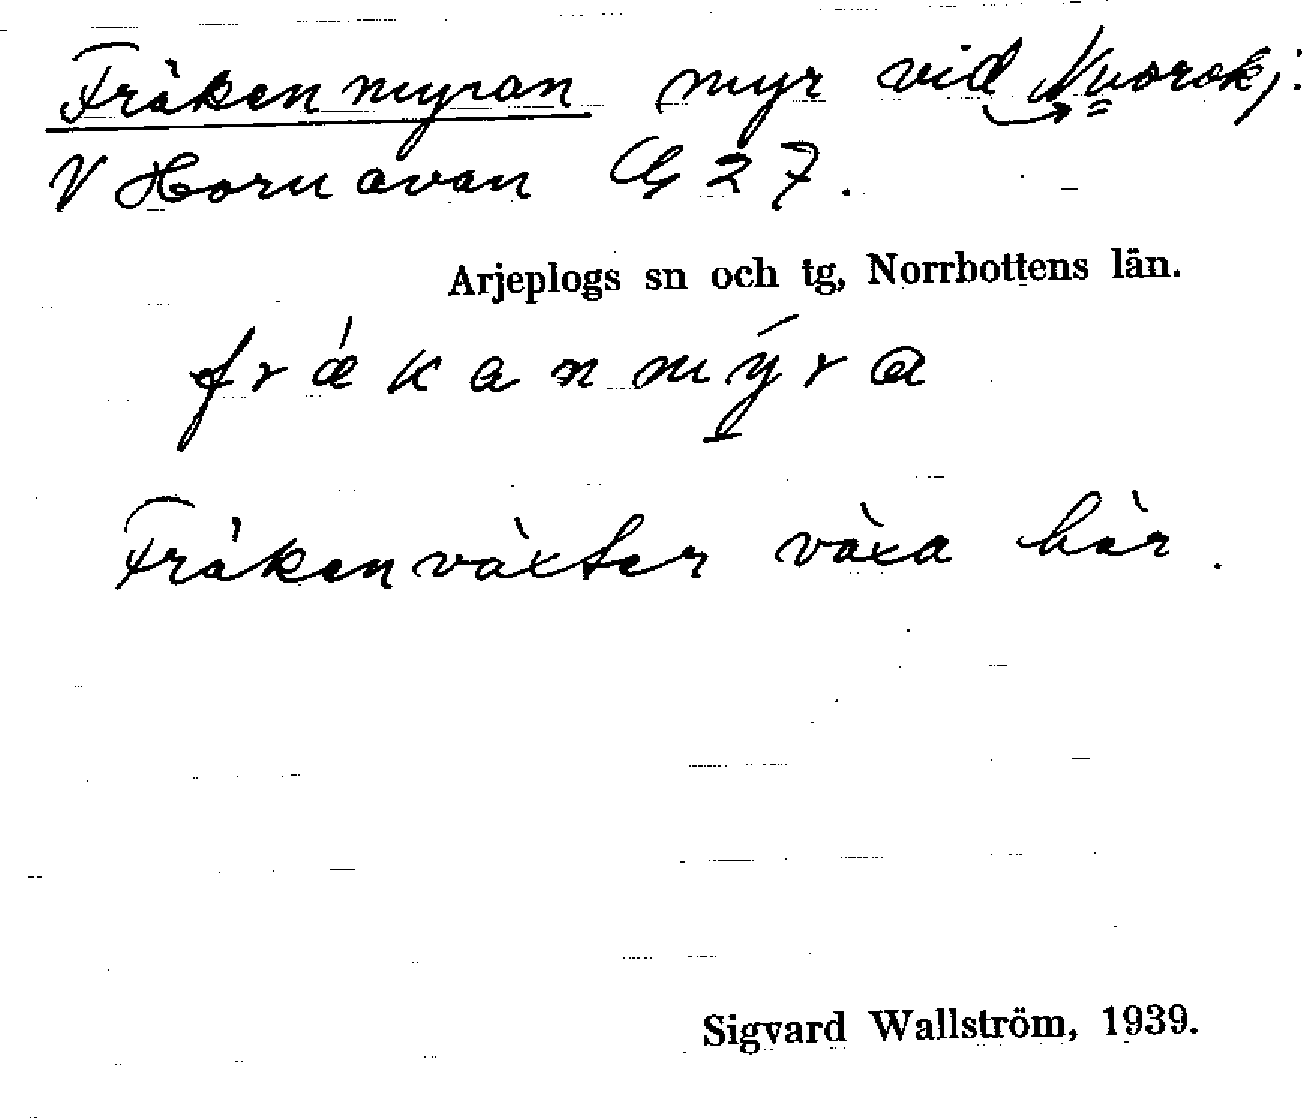 Fräkenmyran myr vid Nuorokj.
V Hornavan G 27.
Arjeplogs sn och tg, Norrbottens län.
frǽkanmýra
Fräkenväxter växa här.
Sigvard Wallström, 1939.